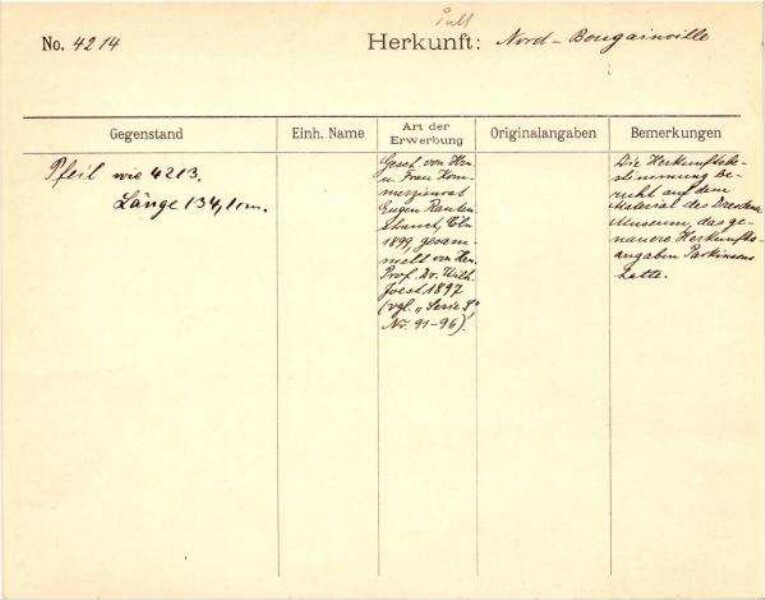 No. 4214
Herkunft: Nord-Bougainville
Gegenstand
Einh. Name
Art der
Erwerbung
Originalangaben
Bemerkungen
Pfeil wie 4213.
Länge 134,1 cm.
Gesch. von Hrn
u. Frau Kom-
merzienrat
Eugen Rauten-
strauch, Cöln
1899, gesam-
melt von Hrn.
Prof. Dr. Wilh.
Joest 1897
(vgl. „Serie S",
Nr. 91-96).
Die Herkunftsbe-
stimmung be-
ruht auf dem
Material des Dresdener
Museums, das ge-
nauere Herkunfts-
angaben Parkinsons
hatte.